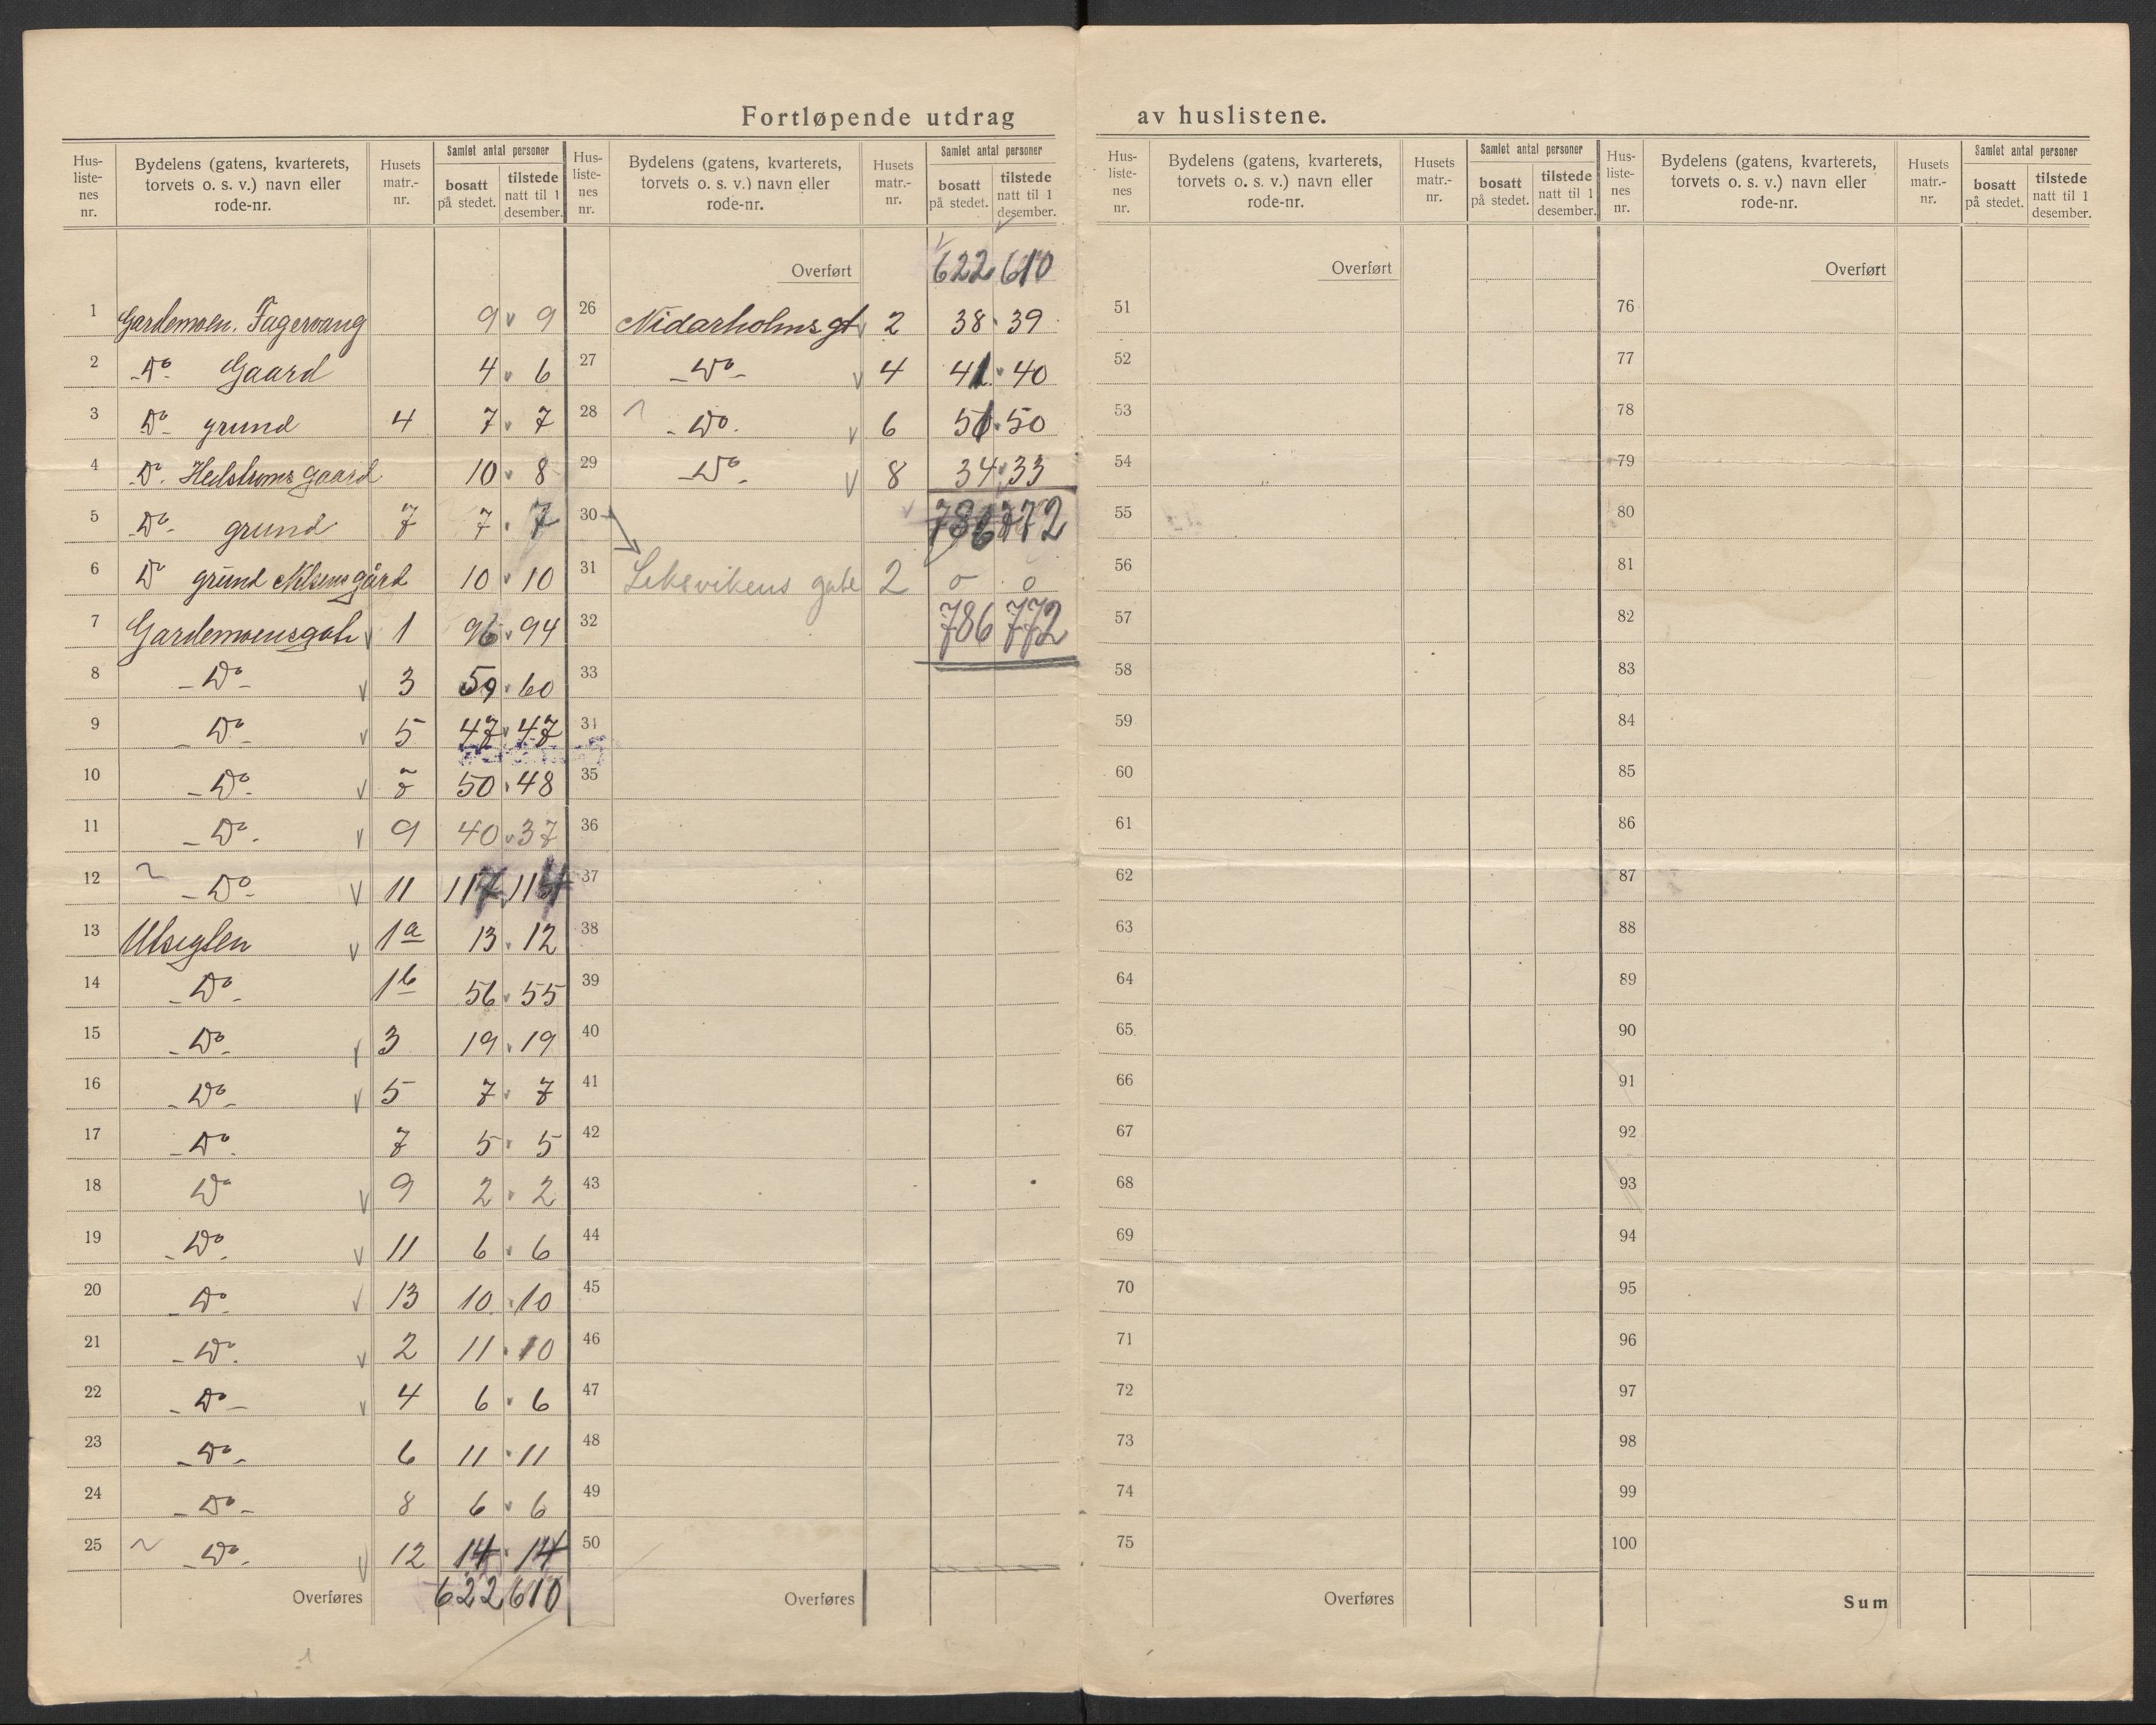 Fortløpende utdrag av huslistene.
Hus-liste-nes nr. Bydelens (gatens, kvarterets, torvets o. s. v.) navn eller rode-nr. Husets matr.-nr. Samlet antal personer bosatt på stedet. tilstede natt til 1 desember.
1 Gardemoen. Fagervang 9 v 9
2 -Do- Gaard 4 v 6
3 Do- grund 4 7 v 7
4 -Do. Hedstroms gaard 10 v 8
5 -Do- grund 7 7 . 7
6 Do grund Nilsens gård 10 v 10
7 Gardemoensgate v 1 96 v 94
8 -Do- v 3 59 v 60
9 -Do- v 5 47 v 47
10 -Do- v 50 . 48
11 -Do- v 9 40 v 37
12 ~ -Do- v 11 117 114
13 v 1a 13 . 12
14 -Do- 1b 56 v 55
15 -Do- v 3 19 . 19
16 -Do- v 5 7 v 7
17 -Do- 7 5 v 5
18 Do v 9 2 v 2
19 -Do- v 11 6 v 6
20 -Do- v 13 10 . 10
21 -Do. v 2 11 . 10
22 -Do- v 4 6 v 6
23 -Do- 6 11 . 11
24 -Do- 8 6 v 6
25 ~ -Do- v 12 14 . 14
Overføres 622 610
Hus-liste-nes nr. Bydelens (gatens, kvarterets, torvets o. s. v.) navn eller rode-nr. Husets matr.-nr. Samlet antal personer bosatt på stedet. tilstede natt til 1 desember.
Overført 622 610
26 Nidarholms gt v 2 38 . 39
27 -Do- v 4 41 . 40
28 -Do. v 6 51 . 50
29 -Do- v 8 34 . 33
30 786 772
31 Leksvikens gate 2 o o
32 786 772
33
34
35
36
37
38
39
40
41
42
43
44
45
46
47
48
49
50
Overføres
Hus-liste-nes nr. Bydelens (gatens, kvarterets, torvets o. s. v.) navn eller rode-nr. Husets matr.-nr. Samlet antal personer bosatt på stedet. tilstede natt til 1 desember.
Overført
51
52
53
54
55
56
57
58
59
60
61
62
63
64
65
66
67
68
69
70
71
72
73
74
75
Overføres
Hus-liste-nes nr. Bydelens (gatens, kvarterets, torvets o. s. v.) navn eller rode-nr. Husets matr.-nr. Samlet antal personer bosatt på stedet. tilstede natt til 1 desember.
Overført
76
77
78
79
80
81
82
83
84
85
86
87
88
89
90
91
92
93
94
95
96
97
98
99
100
Sum